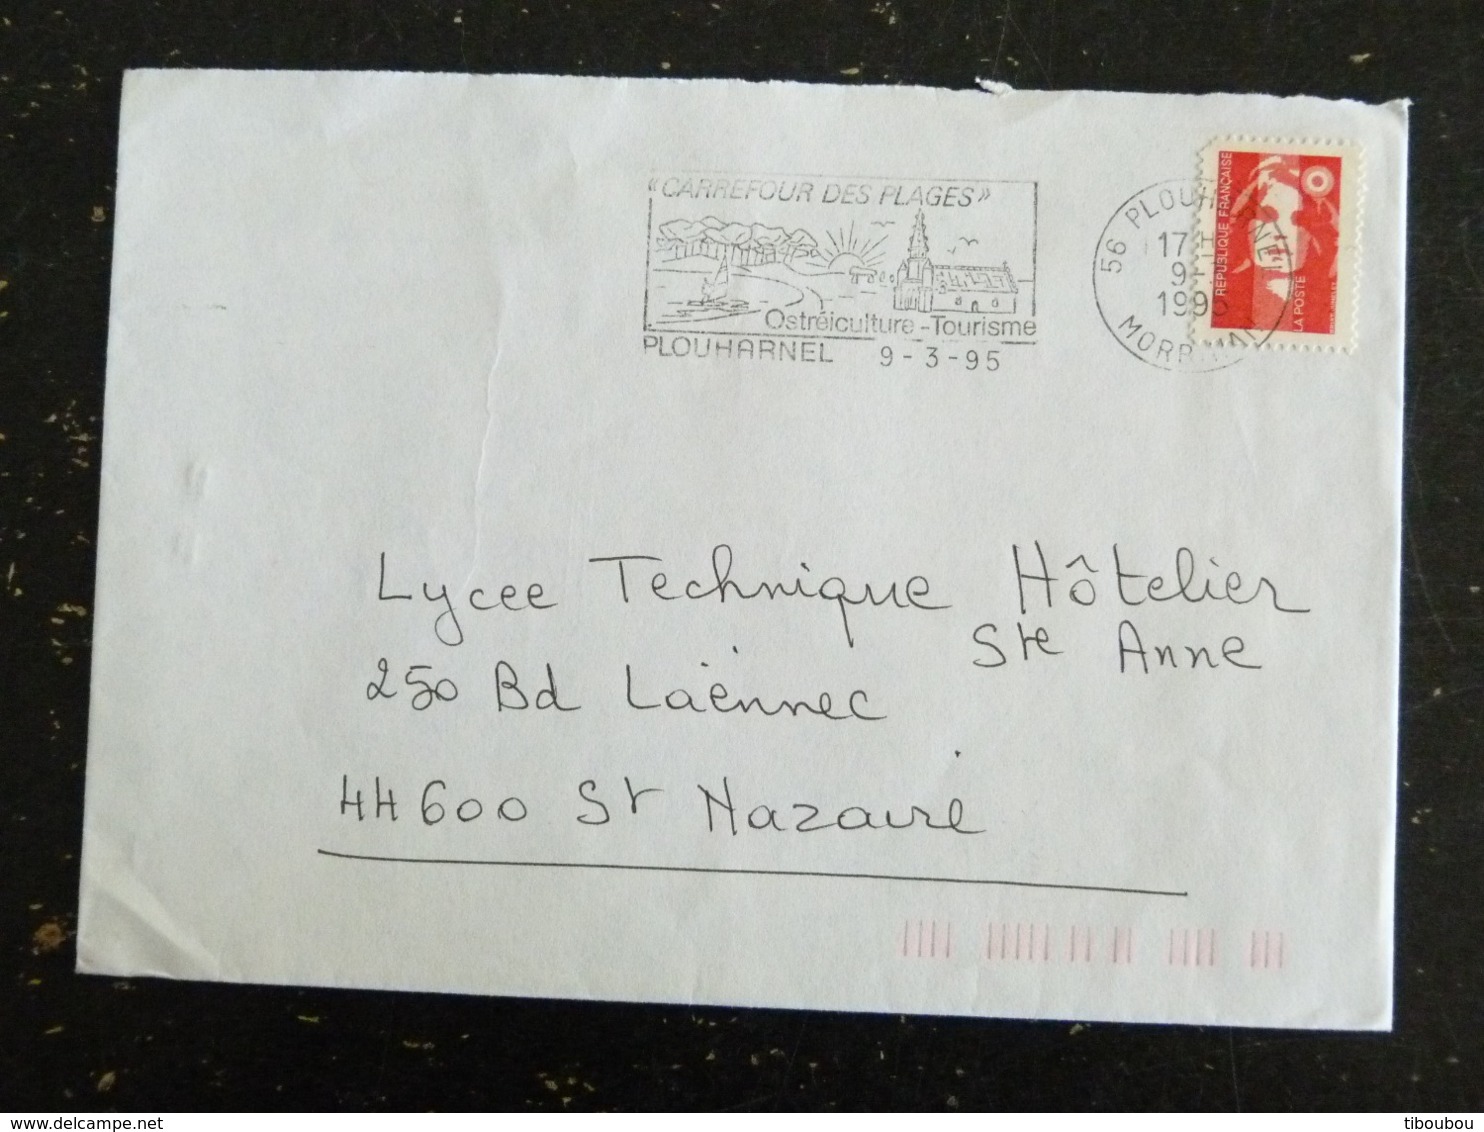 « CARREFOUR DES PLAGES »
Ostréiculture - Tourisme
PLOUHARNEL 9 - 3 - 95
56 PLOUHARNEL
17 H
9 -
1995
MORBIHAN
RÉPUBLIQUE FRANÇAISE
LA POSTE
Lycee Technique Hôtelier
Ste Anne
250 Bd Laënnec
44600 St Nazaire
tiboubou